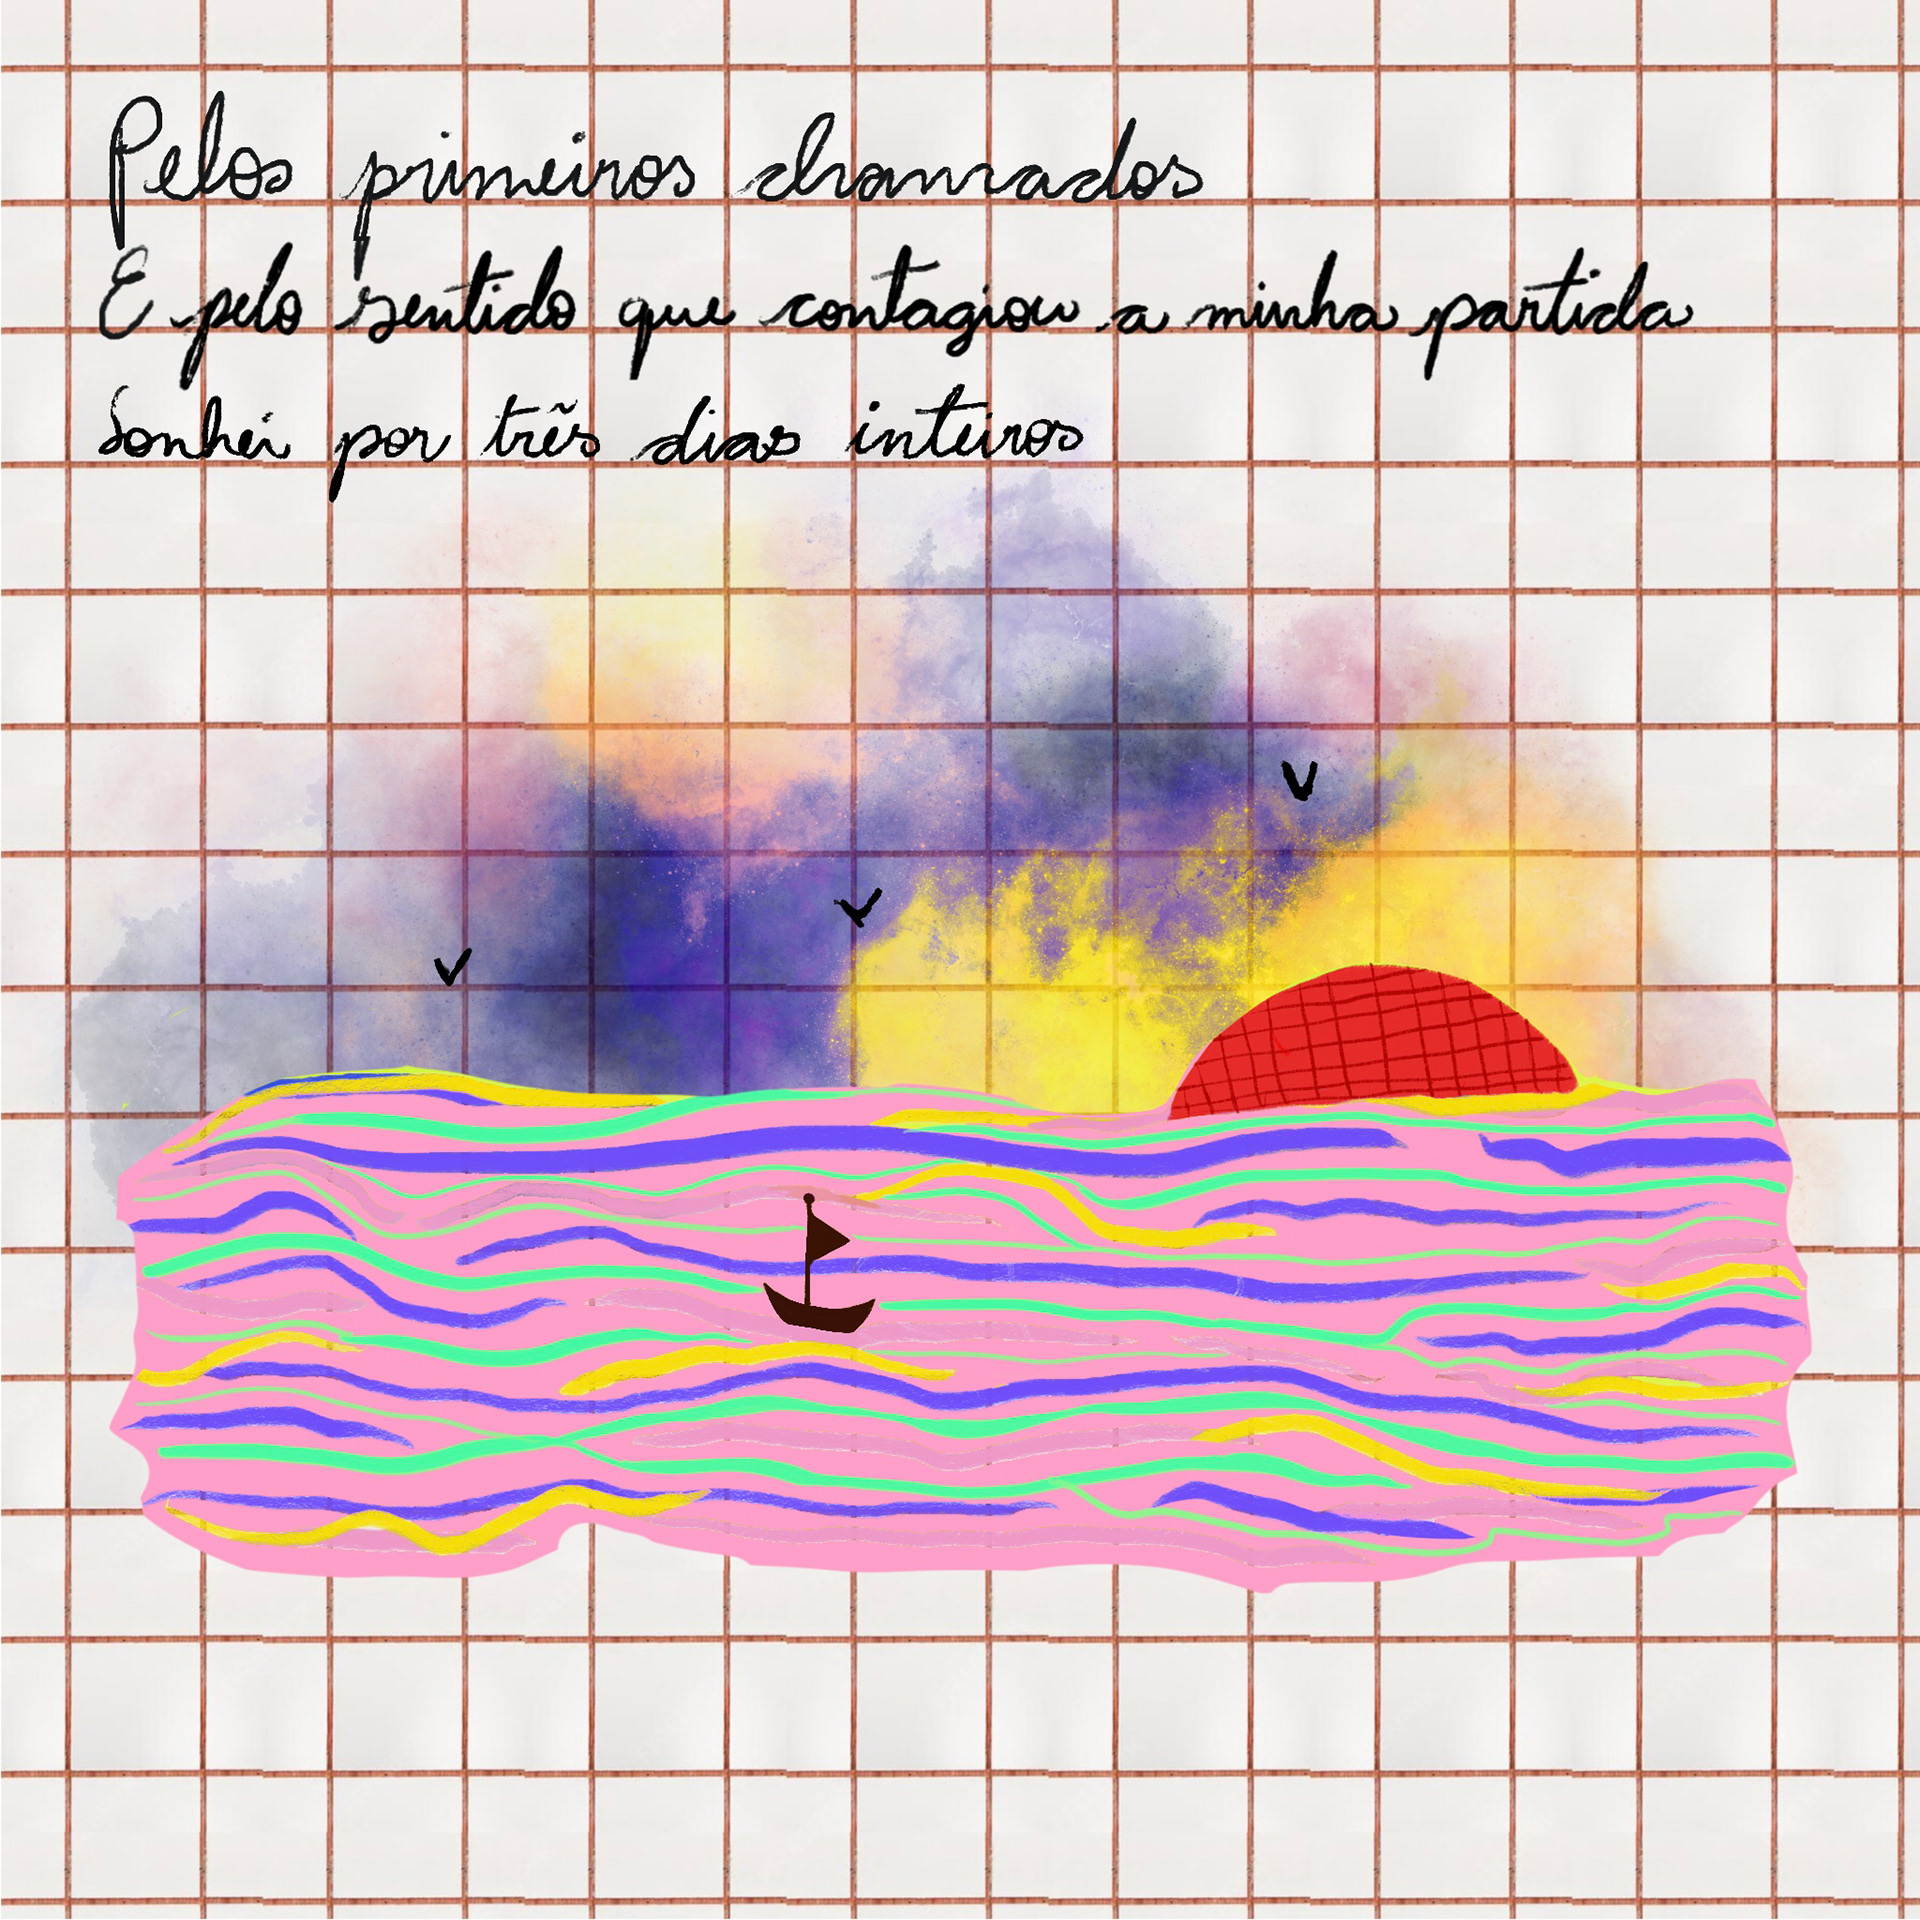 Pelos primeiros chamados
E pelo sentido que contagiou a minha partida
Sonhei por três dias inteiros